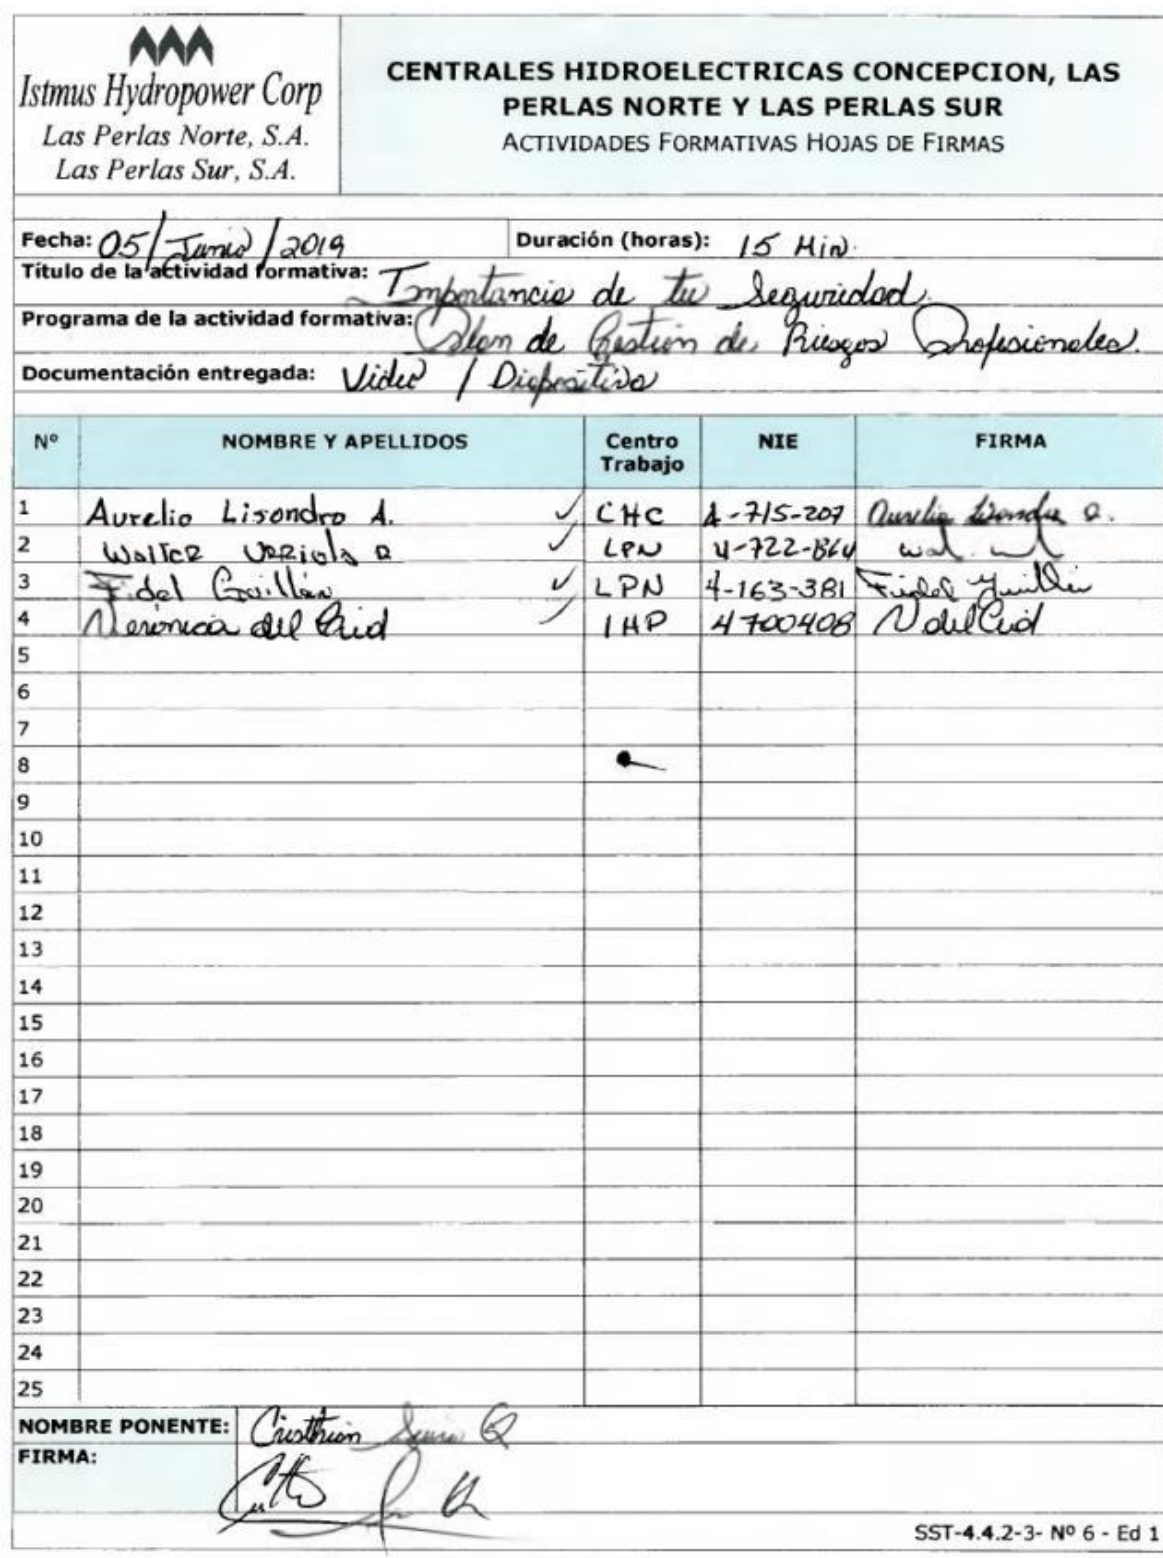 Istmus Hydropower Corp
Las Perlas Norte, S.A.
Las Perlas Sur, S.A.
CENTRALES HIDROELECTRICAS CONCEPCION, LAS
PERLAS NORTE Y LAS PERLAS SUR
ACTIVIDADES FORMATIVAS HOJAS DE FIRMAS
Fecha: 05/Junio/2019 Duración (horas): 15 Min.
Título de la actividad formativa: Importancia de tu Seguridad.
Programa de la actividad formativa: Plan de Gestion de Riesgos Profesionales.
Documentación entregada: Video / Diapositiva
Nº NOMBRE Y APELLIDOS Centro Trabajo NIE FIRMA
1 Aurelio Lisondro A. ✓ CHC 4-715-207 Aurelio
2 Walter Urriola R ✓ LPN 4-722-864
3 Fidel Guillén ✓ LPN 4-163-381 Fidel Guillén
4 Veronica del Cid ✓ IHP 4700408 V del Cid
5
6
7
8
9
10
11
12
13
14
15
16
17
18
19
20
21
22
23
24
25
NOMBRE PONENTE: Cristhian
FIRMA:
SST-4.4.2-3- Nº 6 - Ed 1